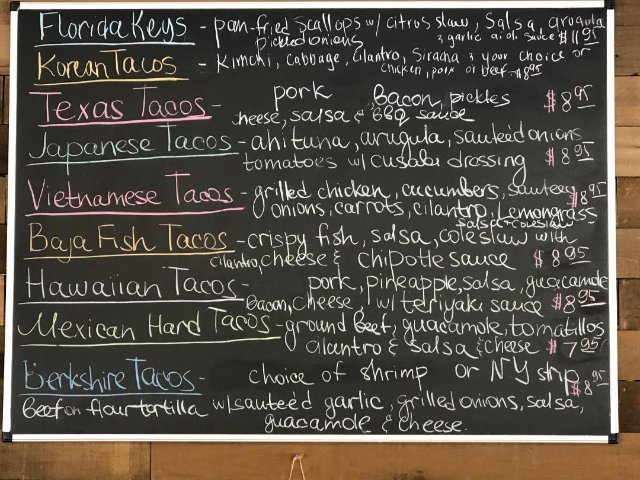 Florida Keys - pan-fried scallops w/ citrus slaw, salsa, arugula
pickled onions & garlic aioli sauce $11.95
Korean Tacos - Kimchi, cabbage, cilantro, Siracha & your choice of
chicken, pork or beef - $8.95
Texas Tacos - pork Bacon, pickles $8.95
cheese, salsa & BBQ sauce
Japanese Tacos - ahi tuna, arugula, sauteéd onions
tomatoes w/ cusabi dressing $8.95
Vietnamese Tacos - grilled chicken, cucumbers, sauteed $8.95
onions, carrots, cilantro, Lemongrass
salsa + coleslaw
Baja Fish Tacos - crispy fish, salsa, coleslaw with
cilantro, cheese & chipotle sauce $8.95
Hawaiian Tacos - pork, pineapple, salsa, guacamole
bacon, cheese, w/ teriyaki sauce $8.95
Mexican Hard Tacos - ground beef, guacamole, tomatillos
cilantro & salsa & cheese $7.95
Berkshire Tacos - choice of shrimp or NY strip $8.95
Beef on flour tortilla w/ sauteéd garlic, grilled onions, salsa,
guacamole & cheese.